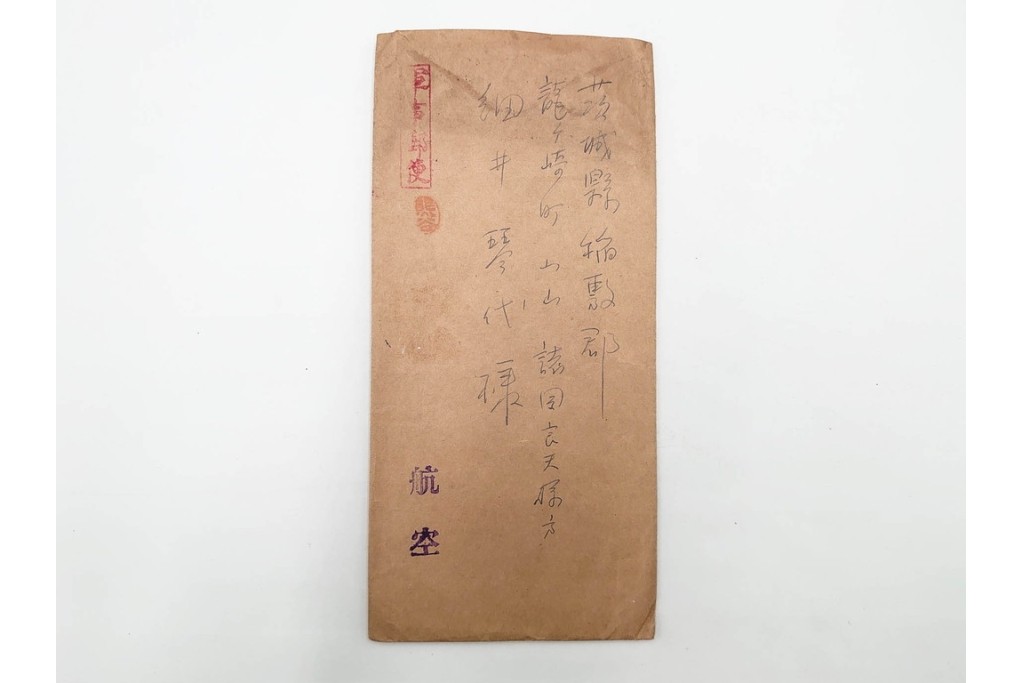 茨城縣稲敷郡
龍ケ崎町 諸岡 様方
細井琴代様
軍事郵便
航空